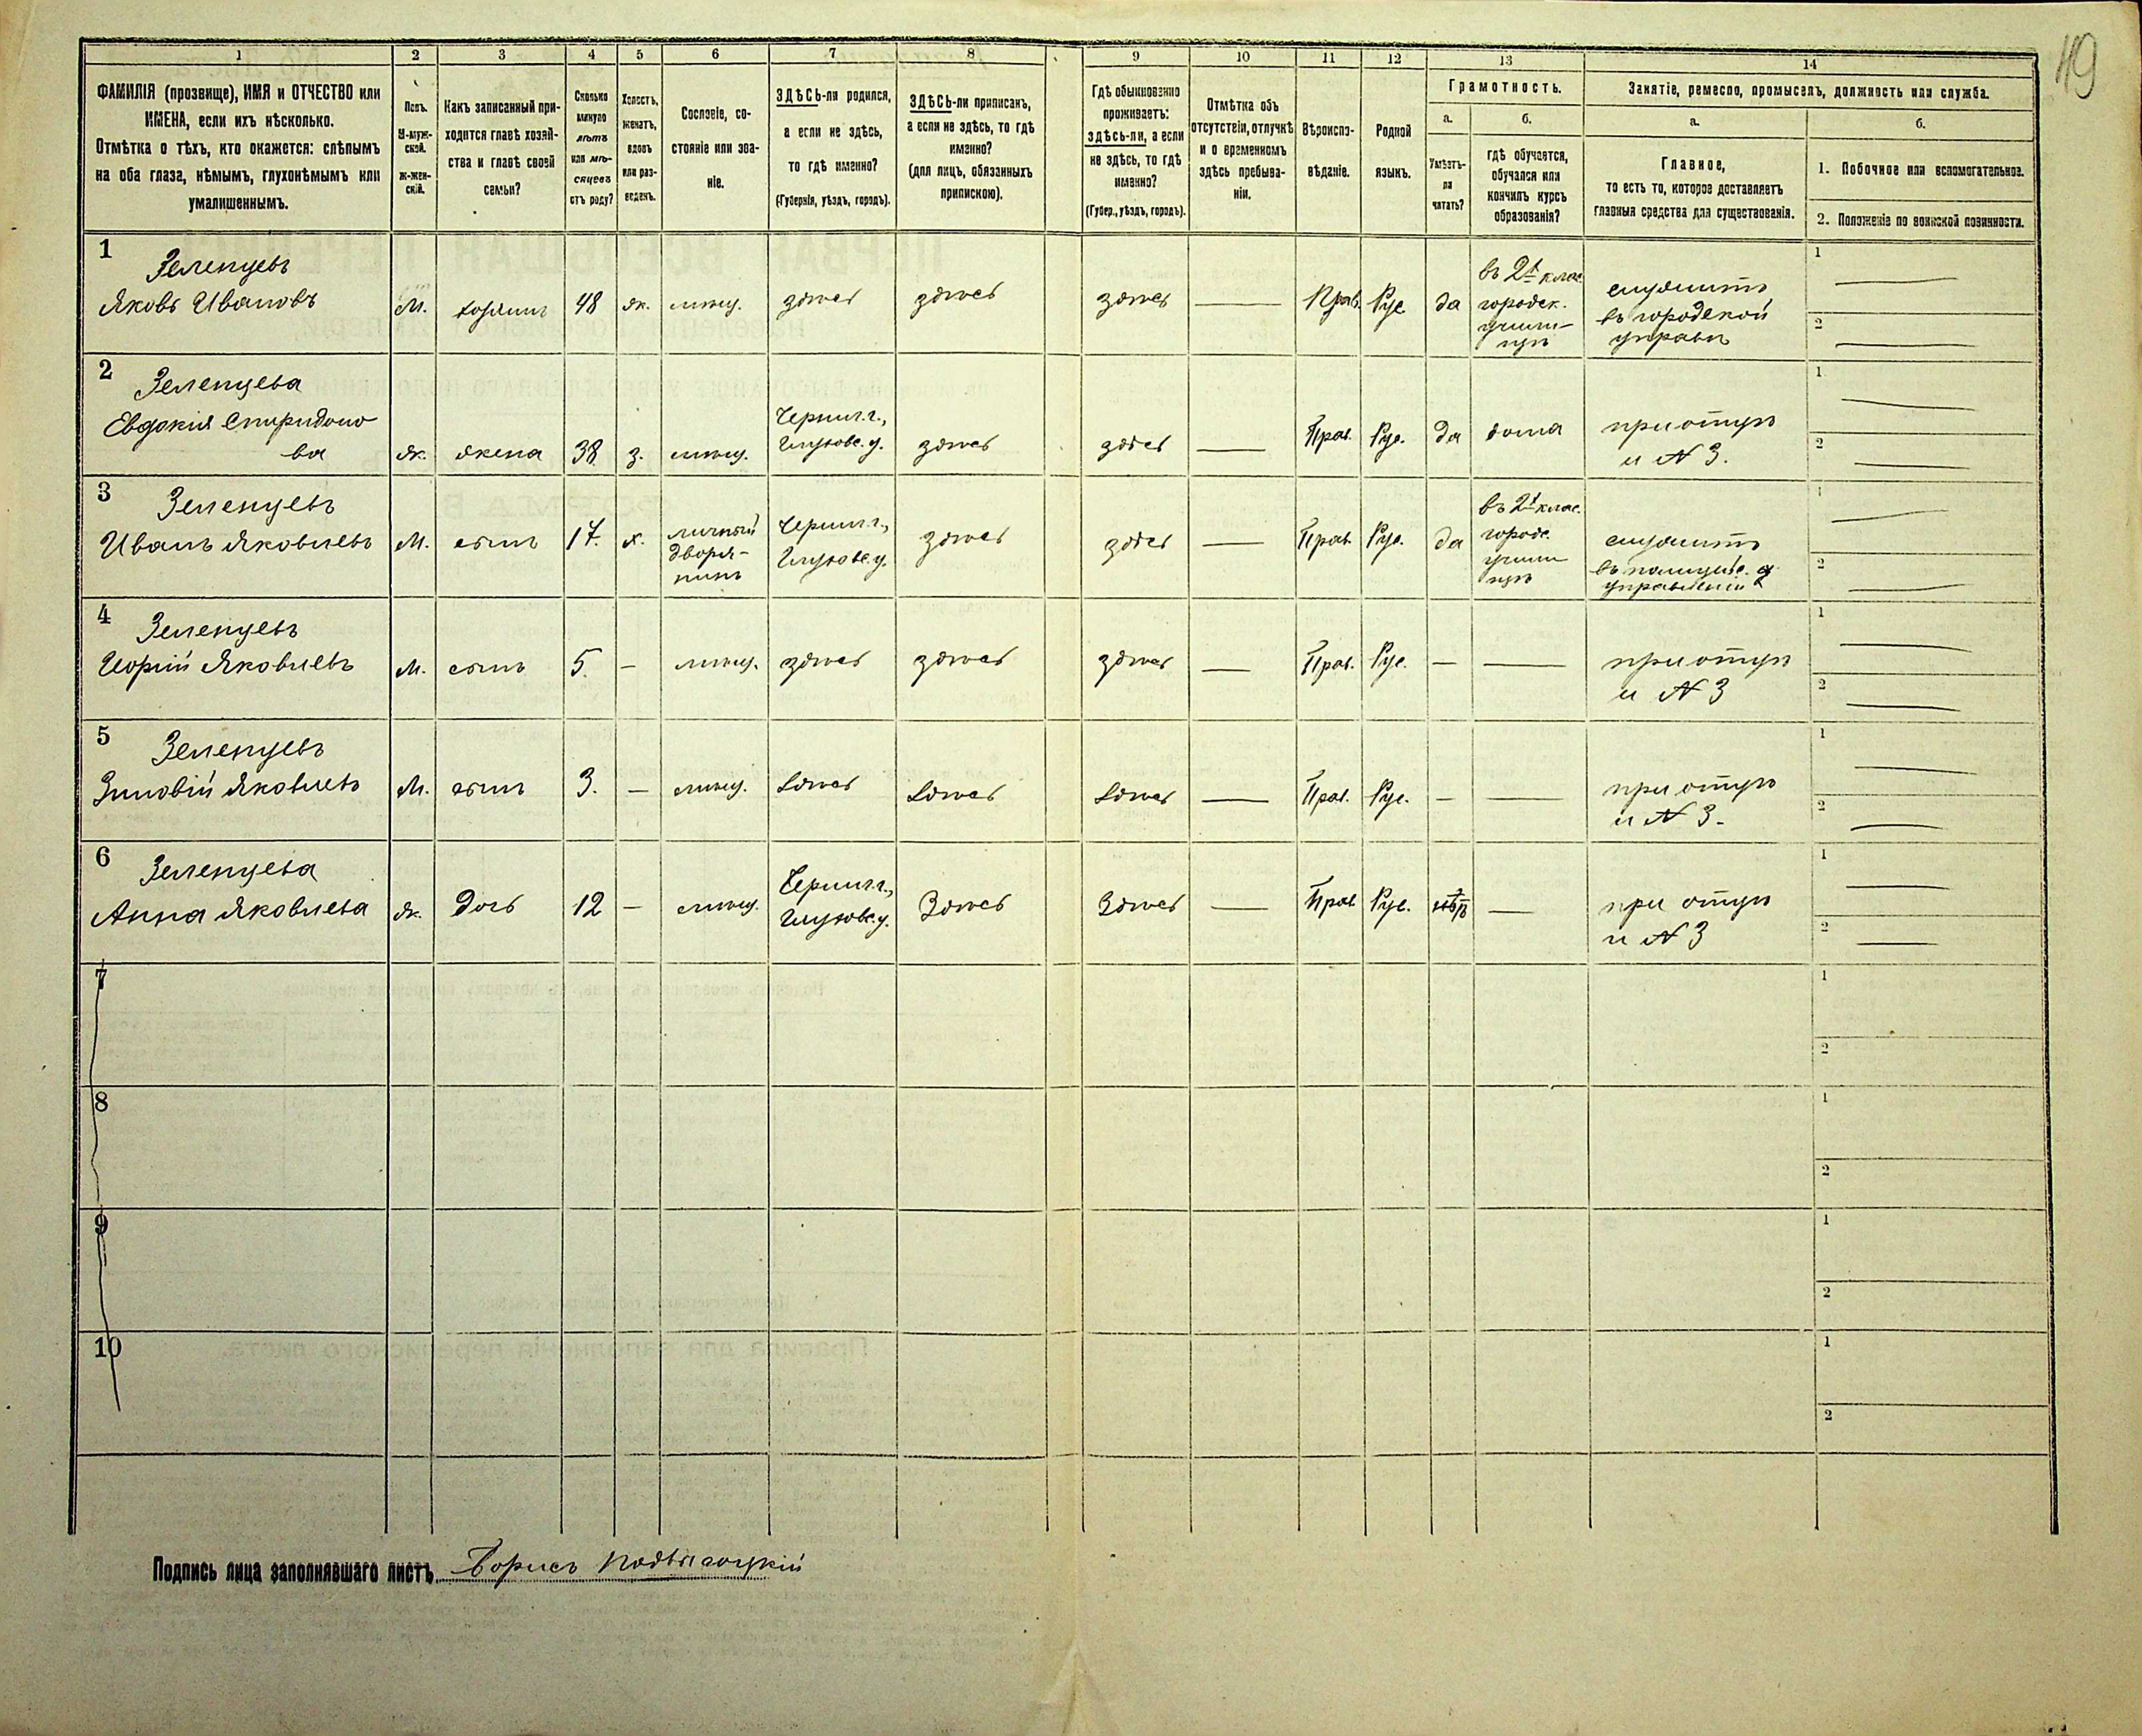 49
1 2 3 4 5 6 7 8 9 10 11 12 13 14
ФАМИЛІЯ (прозвище), ИМЯ и ОТЧЕСТВО или
ИМЕНА, если ихъ нѣсколько.
Отмѣтка о тѣхъ, кто окажется: слѣпымъ
на оба глаза, нѣмымъ, глухонѣмымъ или
умалишеннымъ.
Полъ.
М-муж-
ской.
ж-жен-
скій.
Какъ записанный при-
ходится главѣ хозяй-
ства и главѣ своей
семьи?
Сколько
минуло
лѣтъ
или мѣ-
сяцевъ
отъ роду?
Холостъ,
женатъ,
вдовъ
или раз-
веденъ.
Сословіе, со-
стояніе или зва-
ніе.
ЗДѢСЬ-ли родился,
а если не здѣсь,
то гдѣ именно?
(Губернія, уѣздъ, городъ).
ЗДѢСЬ-ли приписанъ,
а если не здѣсь, то гдѣ
именно?
(для лицъ, обязанныхъ
припискою).
Гдѣ обыкновенно
проживаетъ:
здѣсь-ли, а если
не здѣсь, то гдѣ
именно?
(Губер., уѣздъ, городъ).
Отмѣтка объ
отсутствіи, отлучкѣ
и о временномъ
здѣсь пребыва-
ніи.
Вѣроиспо-
вѣданіе.
Родной
языкъ.
Грамотность.
а.
Умѣетъ-
ли
читать?
б.
гдѣ обучается,
обучался или
кончилъ курсъ
образованія?
Занятіе, ремесло, промыселъ, должность или служба.
а.
Главное,
то есть то, которое доставляетъ
главныя средства для существованія.
б.
1. Побочное или вспомогательное.
2. Положеніе по воинской повинности.
1
Зеленцевъ
Яковъ Ивановъ
М.
хозяинъ
48
ж.
мѣщ.
здѣсь
здѣсь
здѣсь
—
Прав.
Рус
да
въ 2й клас.
городск.
учили-
щѣ
служитъ
въ городской
управѣ
1 —
2 —
2
Зеленцева
Евдокія Спиридоно
ва
ж.
жена
38
з.
мѣщ.
Черниг. г.,
Глуховс. у.
здѣсь
здѣсь
—
Прав.
Рус.
да
дома
при отцѣ
и N 3.
1 —
2 —
3
Зеленцевъ
Иванъ Яковлевъ
М.
сынъ
17.
х.
личный
дворя-
нинъ
Черниг. г.,
Глуховс. у.
здѣсь
здѣсь
—
Прав.
Рус.
да
въ 2й клас.
городс.
учили
щѣ
служитъ
въ полицейс.
управленіи
1 —
2 —
4
Зеленцевъ
Яковлевъ
М.
сынъ
5.
—
мѣщ.
здѣсь
здѣсь
здѣсь
—
Прав.
Рус.
—
—
при отцѣ
и N 3
1 —
2 —
5
Зеленцевъ
Зиновій Яковлевъ
М.
сынъ
3.
—
мѣщ.
здѣсь
здѣсь
здѣсь
—
Прав.
Рус.
—
—
при отцѣ
и N 3.
1 —
2 —
6
Зеленцева
Анна Яковлева
ж.
дочь
12
—
мѣщ.
Черниг. г.,
Глуховс. у.
Здѣсь
Здѣсь
—
Прав.
Рус.
—
при отцѣ
и N 3
1 —
2 —
7
1
2
8
1
2
9
1
2
10
1
2
Подпись лица заполнявшаго листъ Борисъ Подвысоцкій